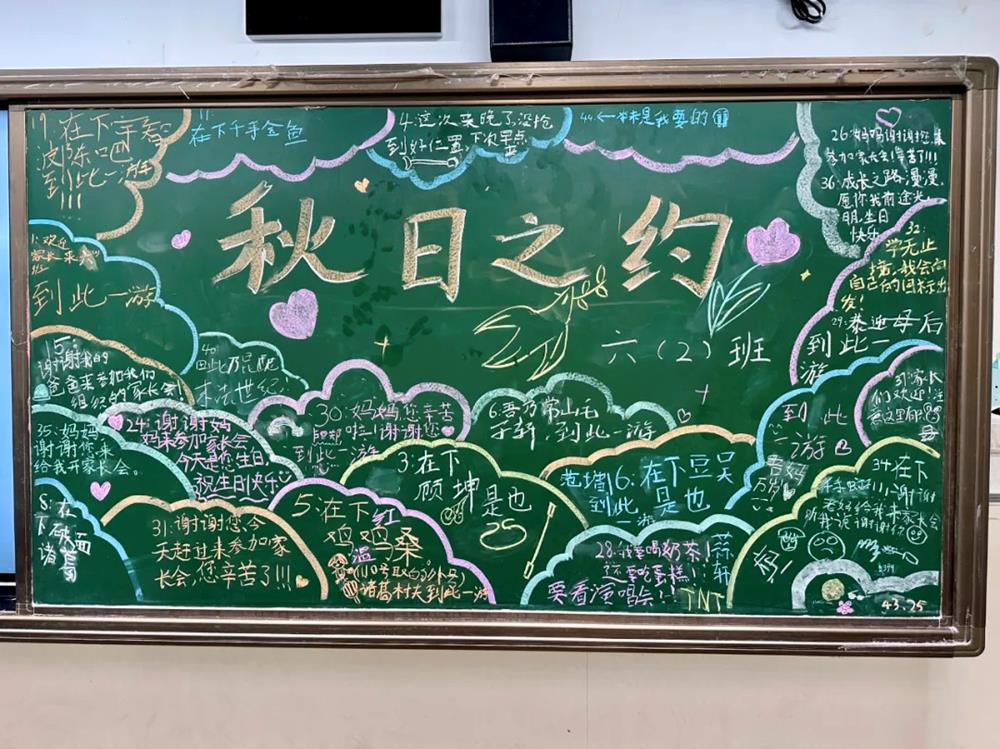 秋日之约
六(2)班
在下
到此一游
11:
在下千手金鱼
4:这次来晚了,没抢
到好位置,下次早点
来
44←本来是我要的
26:妈妈谢谢您来
参加家长会!辛苦了!!!
36:成长之路漫漫,
愿你我前途光
明,生日
快乐
32:
学无止
境,我会向
自己的目标出
发!
29:恭迎母后
到此一
游
1:欢迎
家长来
班
到此一游
15:
谢谢我的
爸爸来参加我们
组织的家长会
40
24:谢谢妈
妈来参加家长会
今天是您生日,
祝生日快乐
30:妈妈您辛苦
啦!谢谢您
到此一游
6:吾乃常山毛
子轩,到此一游
到此
一游
吾妈
万岁
37家长
们欢迎
35:妈妈
谢谢您来
给我开家长会。
8:在
下
诸
31:谢谢您,今
天赶过来参加家
长会,您辛苦了!!!
5:在下红
温
鸡鸡桑
(10号取的外号)
诸葛村夫到此一游
3:在下
顾坤是也
25
16:在下豆吴
是也
到此
一游
28:我要喝奶茶!
还要吃蛋糕!
要看演唱会!!
TNT
34:在下
43.25